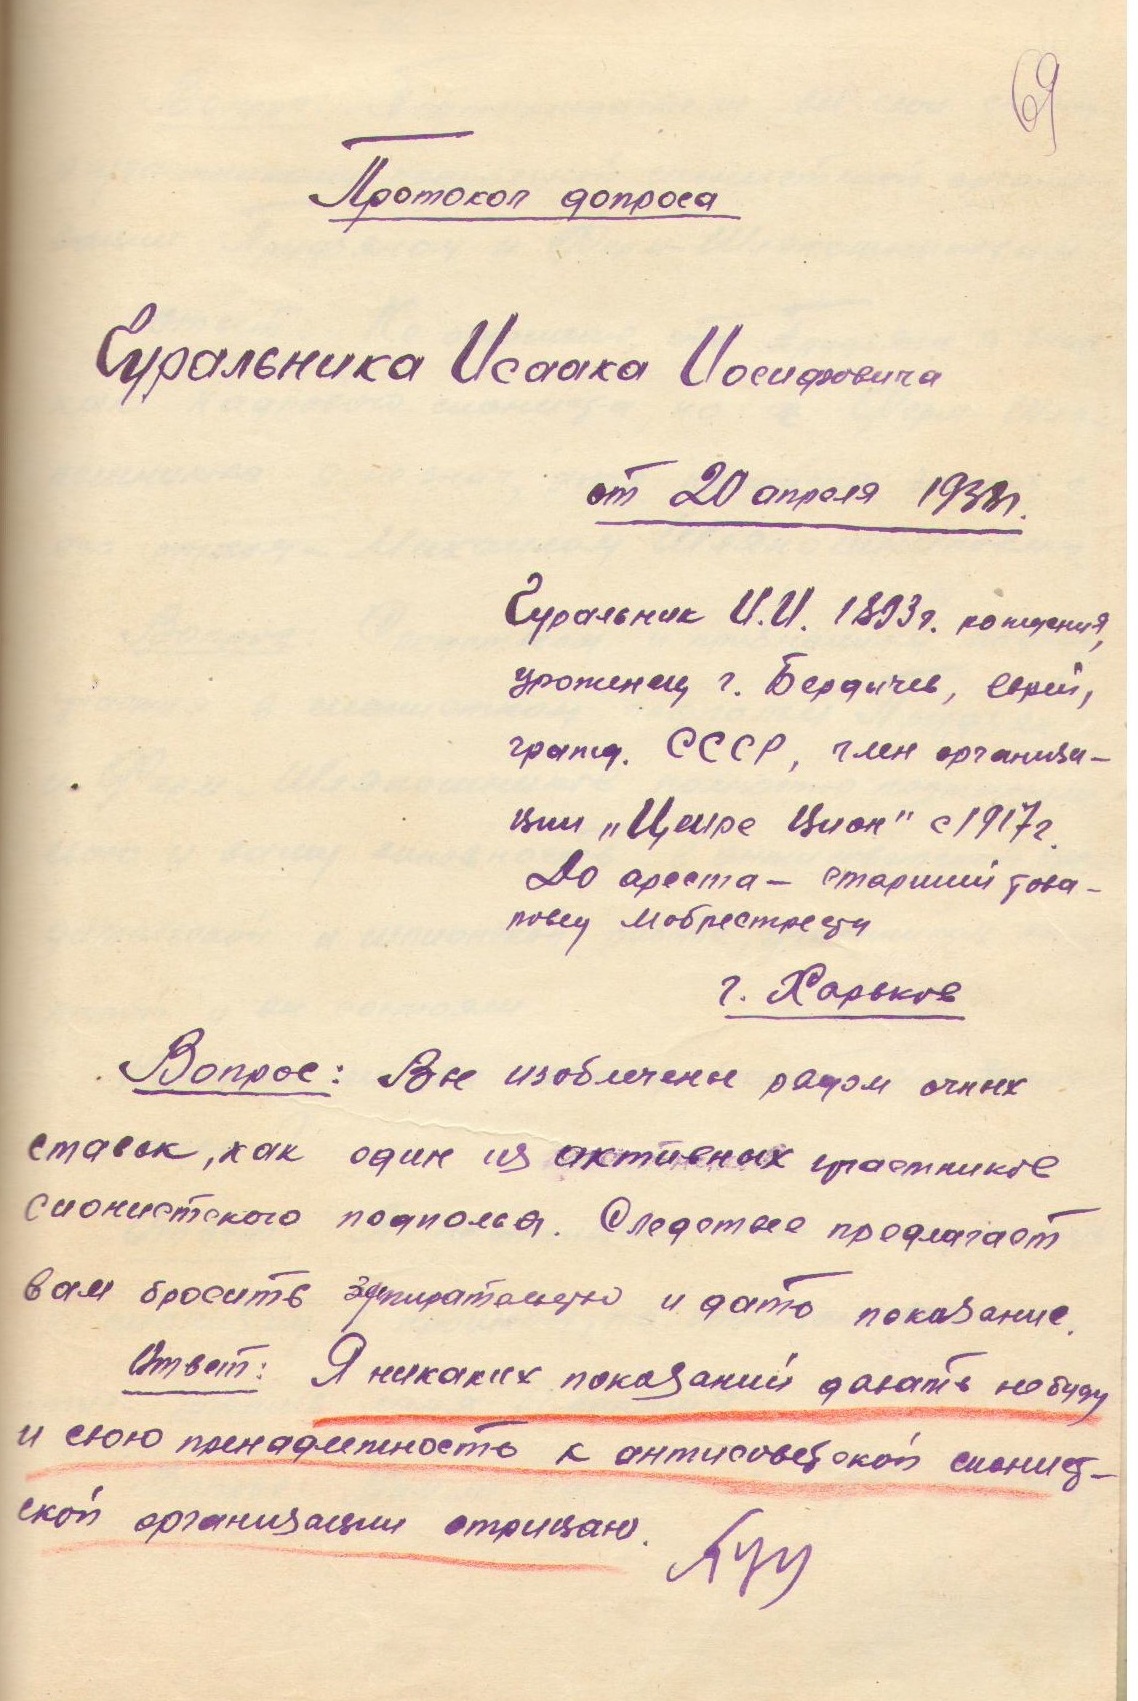 69
Протокол допроса
Гуральника Исаака Иосифовича
от 20 апреля 1938г.
Гуральник И.И. 1893г. рождения,
уроженец г. Бердичев, еврей,
гражд. СССР, член организа-
ции „Цеире Цион" с 1917г.
До ареста – старший това-
ровед
г. Харьков
Вопрос: Вы изобличены рядом очных
ставок, как один из активных участников
сионистского подполья. Следствие предлагает
вам бросить запирательство и дать показание.
Ответ: Я никаких показаний давать не буду
и свою принадлежность к антисоветской сионист-
ской организации отрицаю.